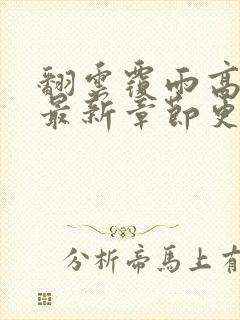 翻雲覆雨高
最新章節更
分析帝馬上有